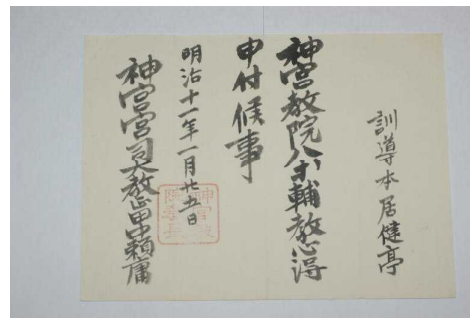 訓導本居健亭
神宮教院輔教心得
申付候事
明治十一年一月廿五日
神宮宮司大教正田中頼庸